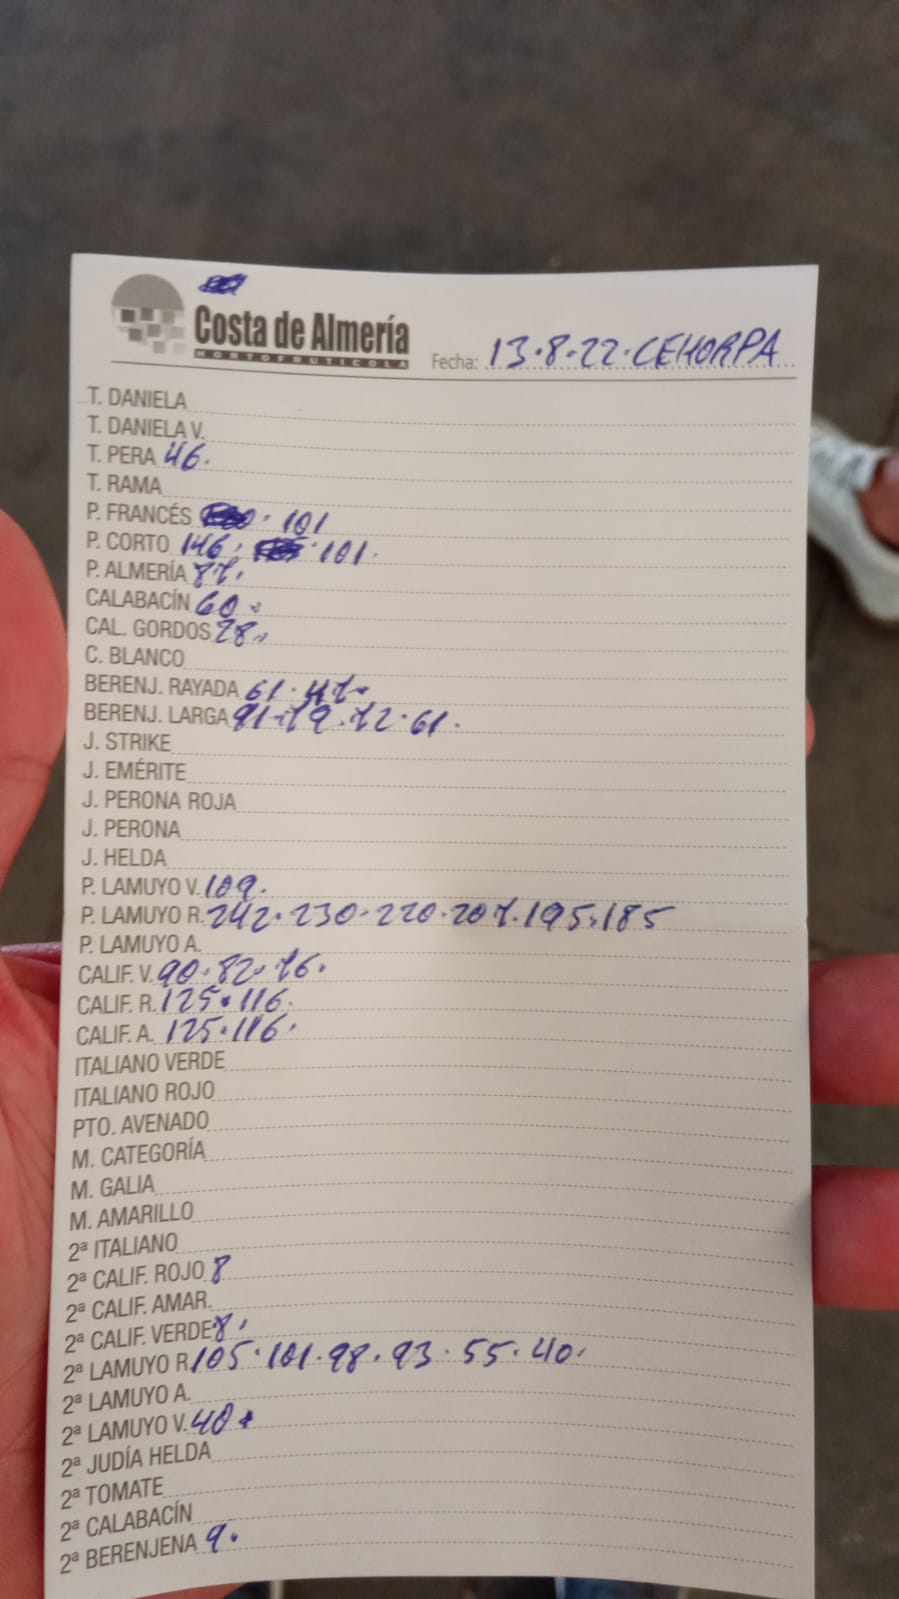 Costa de Almería
HORTOFRUTICOLA
Fecha: 13.8.22.CEHORPA
T. DANIELA
T. DANIELA V.
T. PERA 46.
T. RAMA
P. FRANCÉS . 101
P. CORTO 146. 101.
P. ALMERÍA 87.
CALABACÍN 60.
CAL. GORDOS 28.
C. BLANCO
BERENJ. RAYADA 61.47.
BERENJ. LARGA 91.79.72.61.
J. STRIKE
J. EMÉRITE
J. PERONA ROJA
J. PERONA
J. HELDA
P. LAMUYO V. 109.
P. LAMUYO R. 242.230.220.207.195.185
P. LAMUYO A.
CALIF. V. 90.82.76.
CALIF. R. 125.116.
CALIF. A. 125.116.
ITALIANO VERDE
ITALIANO ROJO
PTO. AVENADO
M. CATEGORÍA
M. GALIA
M. AMARILLO
2ª ITALIANO
2ª CALIF. ROJO 8
2ª CALIF. AMAR.
2ª CALIF. VERDE 8.
2ª LAMUYO R. 105.101.98.93.55.40.
2ª LAMUYO A.
2ª LAMUYO V. 40.
2ª JUDÍA HELDA
2ª TOMATE
2ª CALABACÍN
2ª BERENJENA 9.